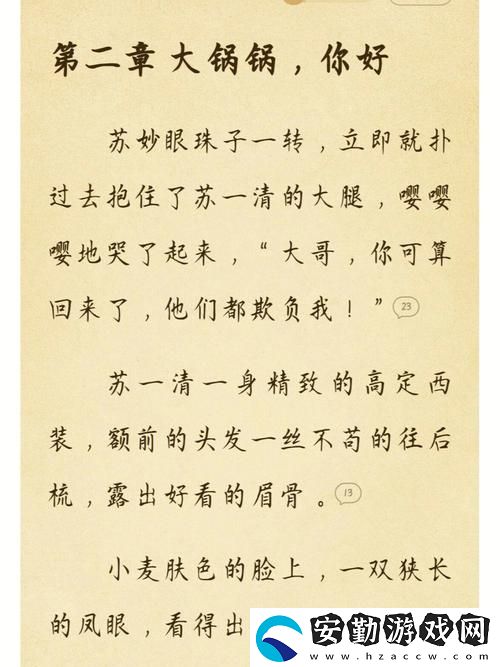 第二章 大锅锅，你好
苏妙眼珠子一转，立即就扑
过去抱住了苏一清的大腿，嘤嘤
嘤地哭了起来，“大哥，你可算
回来了，他们都欺负我！” 23
苏一清一身精致的高定西
装，额前的头发一丝不苟的往后
梳，露出好看的眉骨。 13
小麦肤色的脸上，一双狭长
的凤眼，看得出
安勤游戏网
www.hzaccw.com